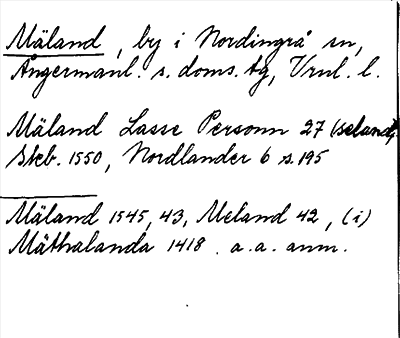 Mäland, by i Nordingrå sn,
Ångermanl. s. doms. tg, Vrnl. l.
Mäland Lasse Personn 27 (seland,
Skb. 1550, Nordlander 6 s. 195
Mäland 1545, 43, Meland 42, (i)
Mäthalanda 1418. a. a. anm.